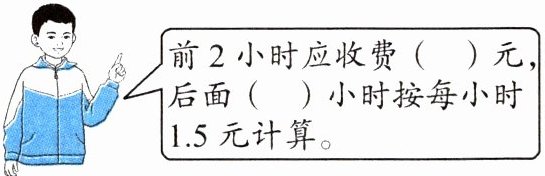 前2小时应收费（　）元，
后面（　）小时按每小时
1.5元计算。